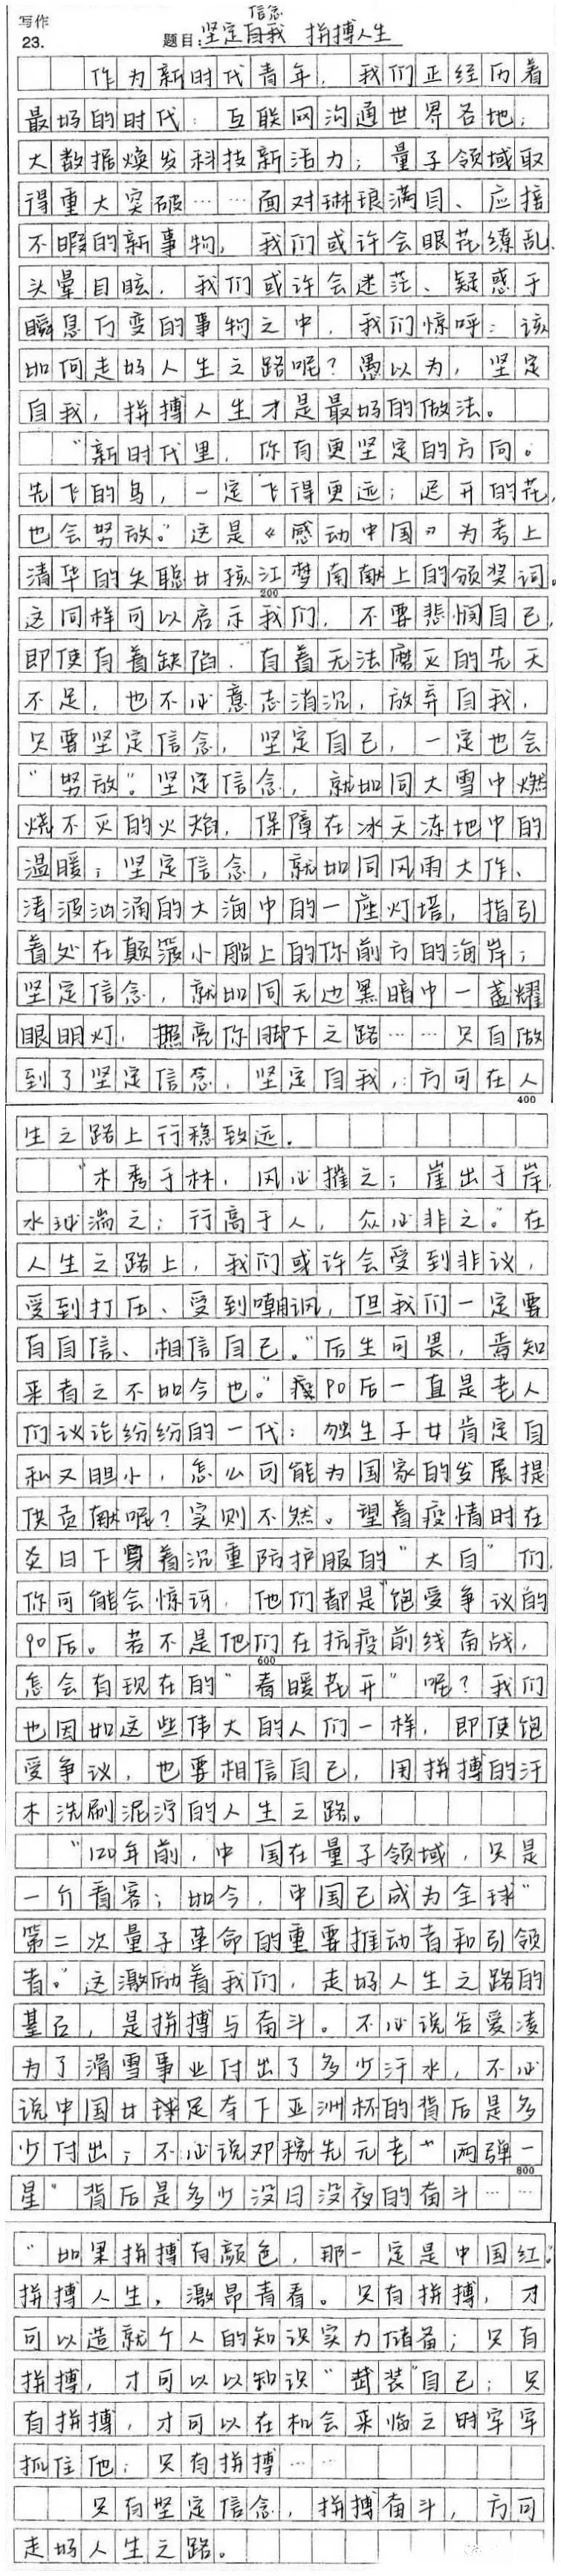 写作
信念
23. 题目:坚定自我 拼搏人生
作为新时代青年，我们正经历着
最好的时代：互联网沟通世界各地；
大数据焕发科技新活力；量子领域取
得重大突破……面对琳琅满目、应接
不暇的新事物，我们或许会眼花缭乱、
头晕目眩，我们或许会迷茫、疑惑于
瞬息万变的事物之中，我们惊呼：该
如何走好人生之路呢？愚以为，坚定
自我，拼搏人生才是最好的做法。
“新时代里，你有更坚定的方向。
先飞的鸟，一定飞得更远；迟开的花，
也会努放。”这是《感动中国》为考上
清华的失聪女孩江梦南献上的颁奖词。
200
这同样可以启示我们，不要悲悯自己，
即使有着缺陷，有着无法磨灭的先天
不足，也不必意志消沉，放弃自我，
只要坚定信念，坚定自己，一定也会
“努放”。坚定信念，就如同大雪中燃
烧不灭的火焰，保障在冰天冻地中的
温暖；坚定信念，就如同风雨大作、
涛波汹涌的大海中的一座灯塔，指引
着处在颠簸小船上的你前方的海岸；
坚定信念，就如同无边黑暗中一盏耀
眼明灯，照亮你脚下之路……只有做
到了坚定信念，坚定自我，方可在人
400
生之路上行稳致远。
“木秀于林，风必摧之；崖出于岸，
水必湍之；行高于人，众必非之。”在
人生之路上，我们或许会受到非议，
受到打压、受到嘲讽，但我们一定要
有自信、相信自己。“后生可畏，焉知
来者之不如今也。”90后一直是老人
们议论纷纷的一代：独生子女肯定自
私又胆小，怎么可能为国家的发展提
供贡献呢？实则不然。望着疫情时在
炎日下穿着沉重防护服的“大白”们，
你可能会惊讶，他们都是“饱受争议的
90后。若不是他们在抗疫前线奋战，
600
怎会有现在的“春暖花开”呢？我们
也因如这些伟大的人们一样，即使饱
受争议，也要相信自己，用拼搏的汗
水洗刷泥泞的人生之路。
“120年前，中国在量子领域，只是
一介看客；如今，中国已成为全球“
第二次量子革命的重要推动者和引领
者。”这激励着我们，走好人生之路的
基石，是拼搏与奋斗。不必说谷爱凌
为了滑雪事业付出了多少汗水，不必
说中国女足夺下亚洲杯的背后是多
少付出；不必说邓稼先元老“两弹一
800
星”背后是多少没日没夜的奋斗……
“如果拼搏有颜色，那一定是中国红。”
拼搏人生，激昂青春。只有拼搏，才
可以造就个人的知识实力储备；只有
拼搏，才可以以知识“武装”自己；只
有拼搏，才可以在机会来临之时牢牢
抓住他；只有拼搏……
只有坚定信念，拼搏奋斗，方可
走好人生之路。